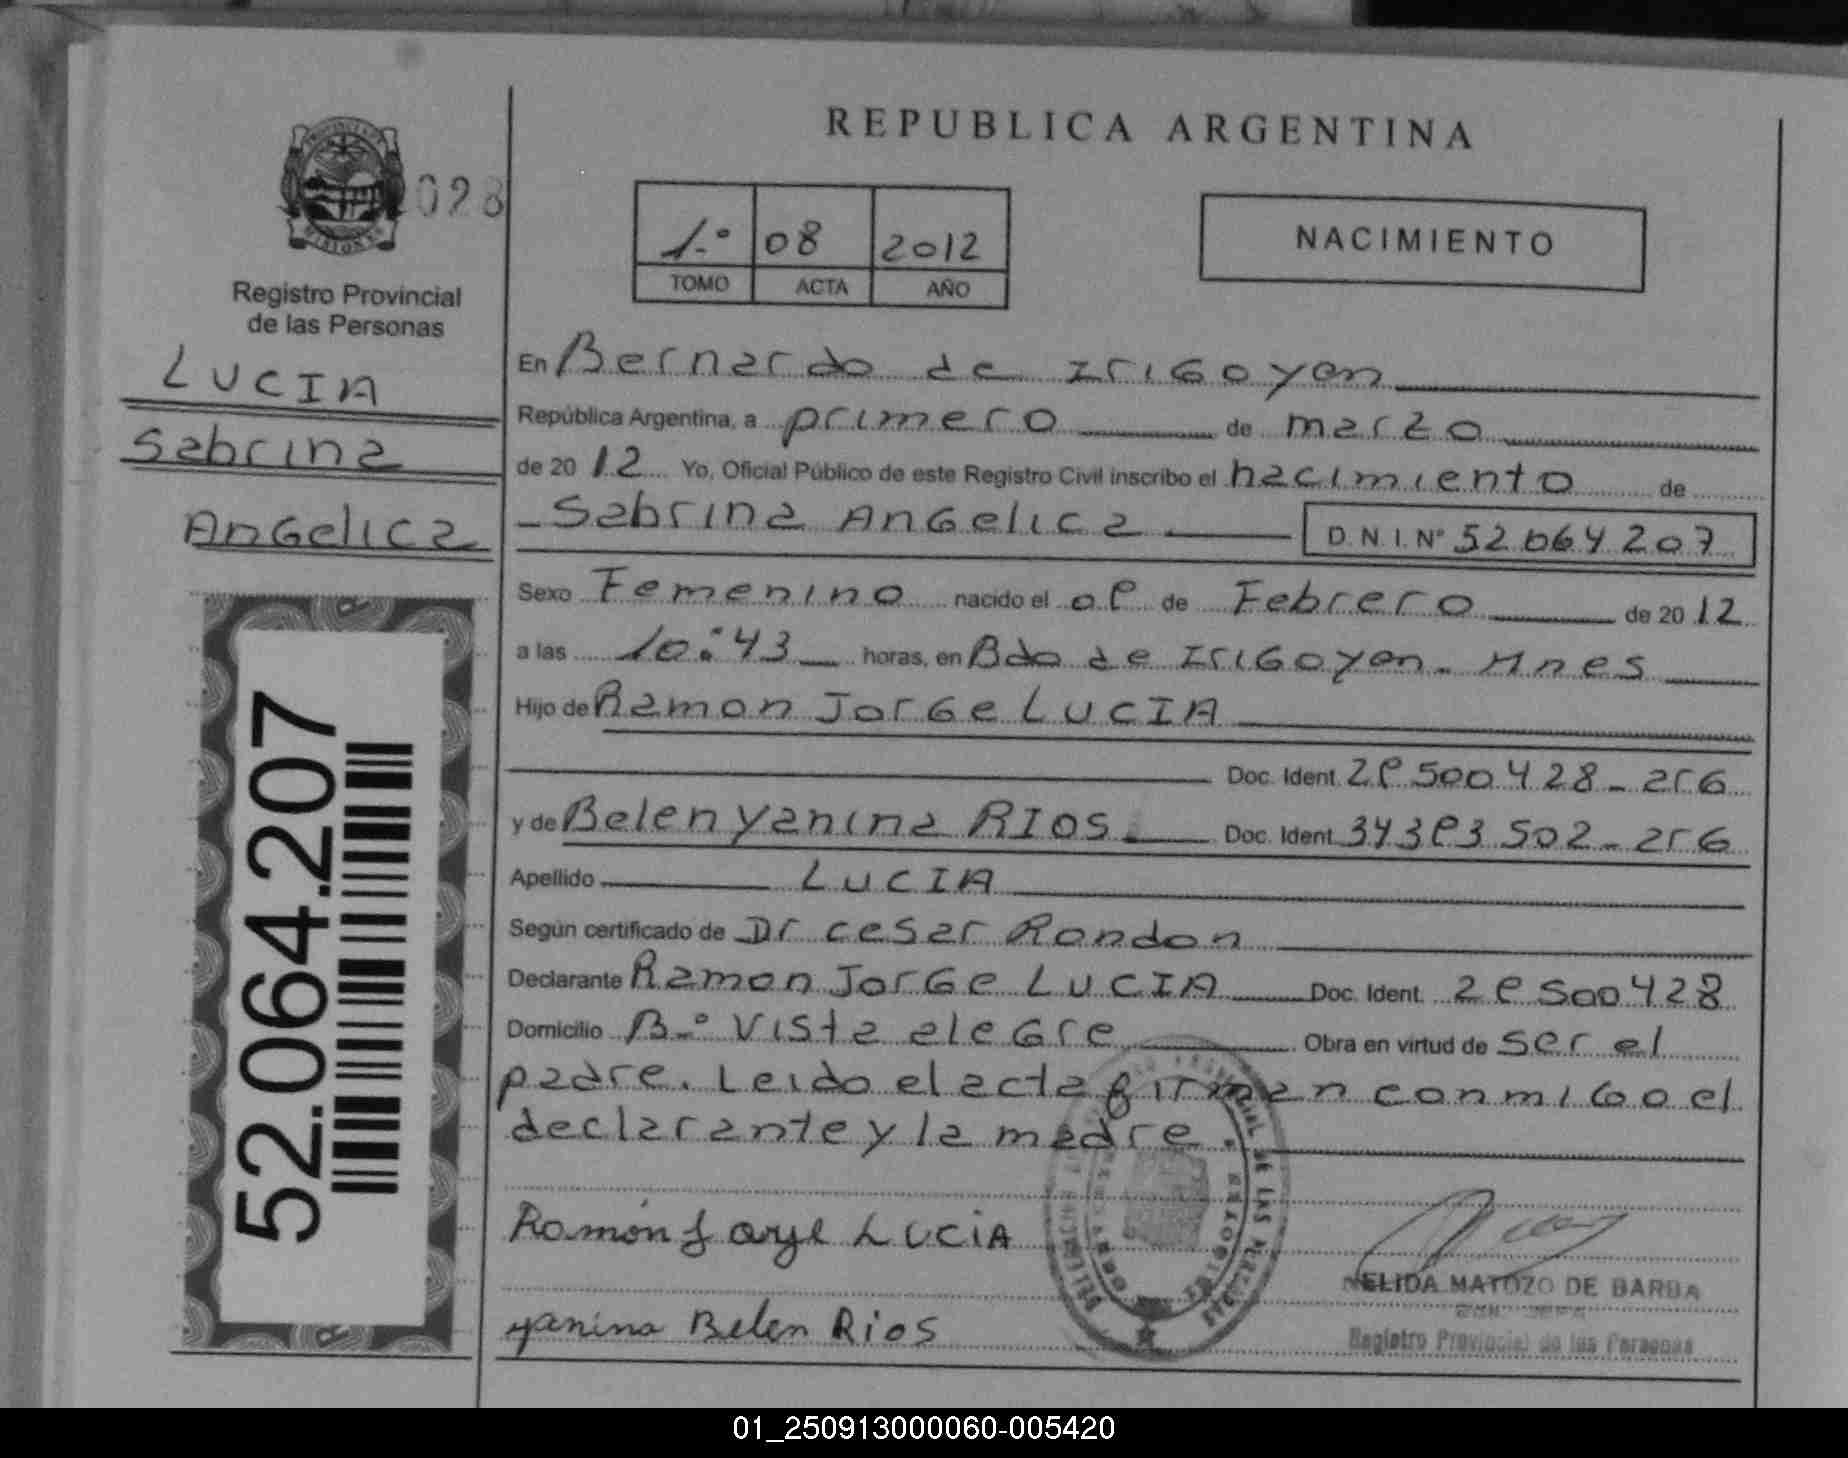 REPUBLICA ARGENTINA
PROVINCIA DE MISIONES
028
Registro Provincial
de las Personas
LUCIA
Sabrina
Angelica
52.064.207
1.º 08 2012
TOMO ACTA AÑO
NACIMIENTO
En Bernardo de Irigoyen
República Argentina, a primero de marzo
de 2012 Yo, Oficial Público de este Registro Civil inscribo el nacimiento de
Sabrina Angelica D.N.I. Nº 52064207
Sexo Femenino nacido el 09 de Febrero de 2012
a las 10:43 horas, en Bdo de Irigoyen - Mnes
Hijo de Ramon Jorge LUCIA
Doc. Ident. 29500428 - arg
y de Belen Yanina RIOS. Doc. Ident. 34393502 - arg
Apellido LUCIA
Según certificado de Dr Cesar Rondon
Declarante Ramon Jorge LUCIA Doc. Ident. 29500428
Domicilio B.º Vista alegre Obra en virtud de ser el
padre. Leido el acta firman conmigo el
declarante y la madre.
Ramón Jorge LUCiA
yanina Belen Rios
NELIDA MATOZO DE BARBA
Registro Provincial de las Personas
01_250913000060-005420